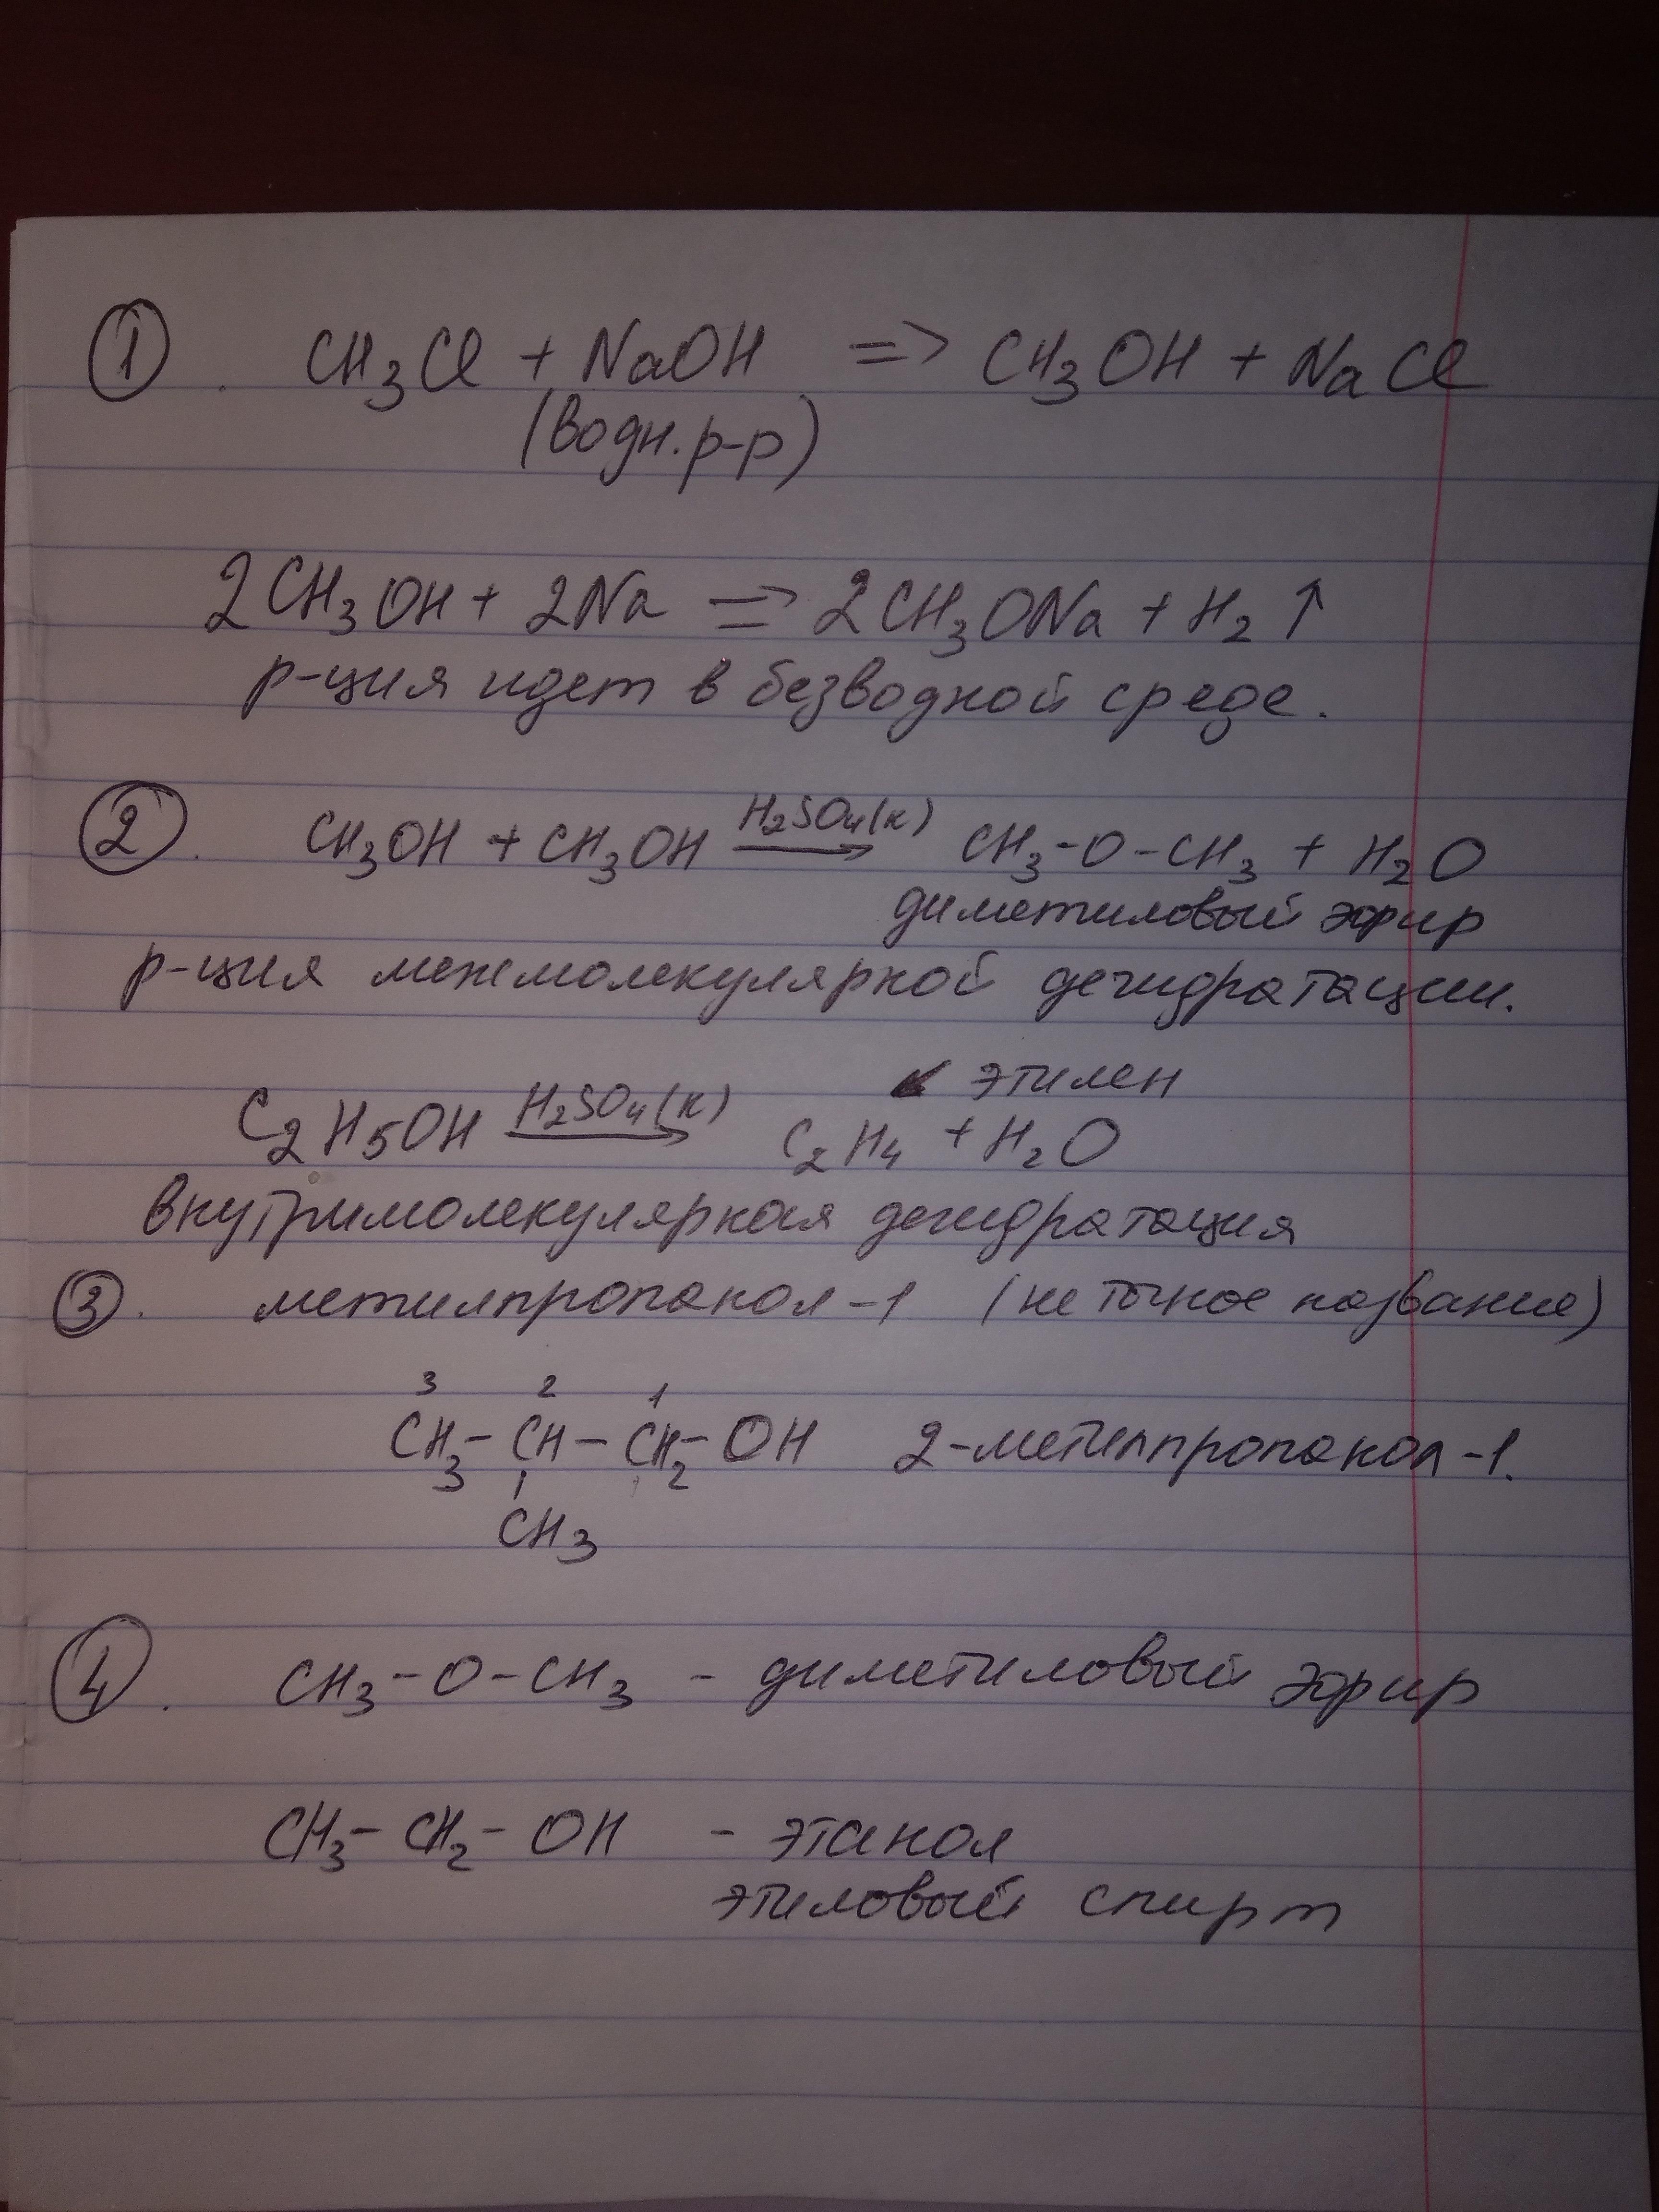 1. CH₃Cl + NaOH => CH₃OH + NaCl
(водн. р-р)
2CH₃OH + 2Na => 2CH₃ONa + H₂↑
р-ция идет в безводной среде.
2. CH₃OH + CH₃OH H₂SO₄(к)→ CH₃-O-CH₃ + H₂O
диметиловый эфир
р-ция межмолекулярной дегидратации.
↙ этилен
C₂H₅OH H₂SO₄(к)→ C₂H₄ + H₂O
внутримолекулярная дегидратация
3. метилпропанол-1 (не точное название)
3 2 1
CH₃-CH-CH₂-OH 2-метилпропанол-1.
CH₃
4. CH₃-O-CH₃ - диметиловый эфир
CH₃-CH₂-OH - этанол
этиловый спирт